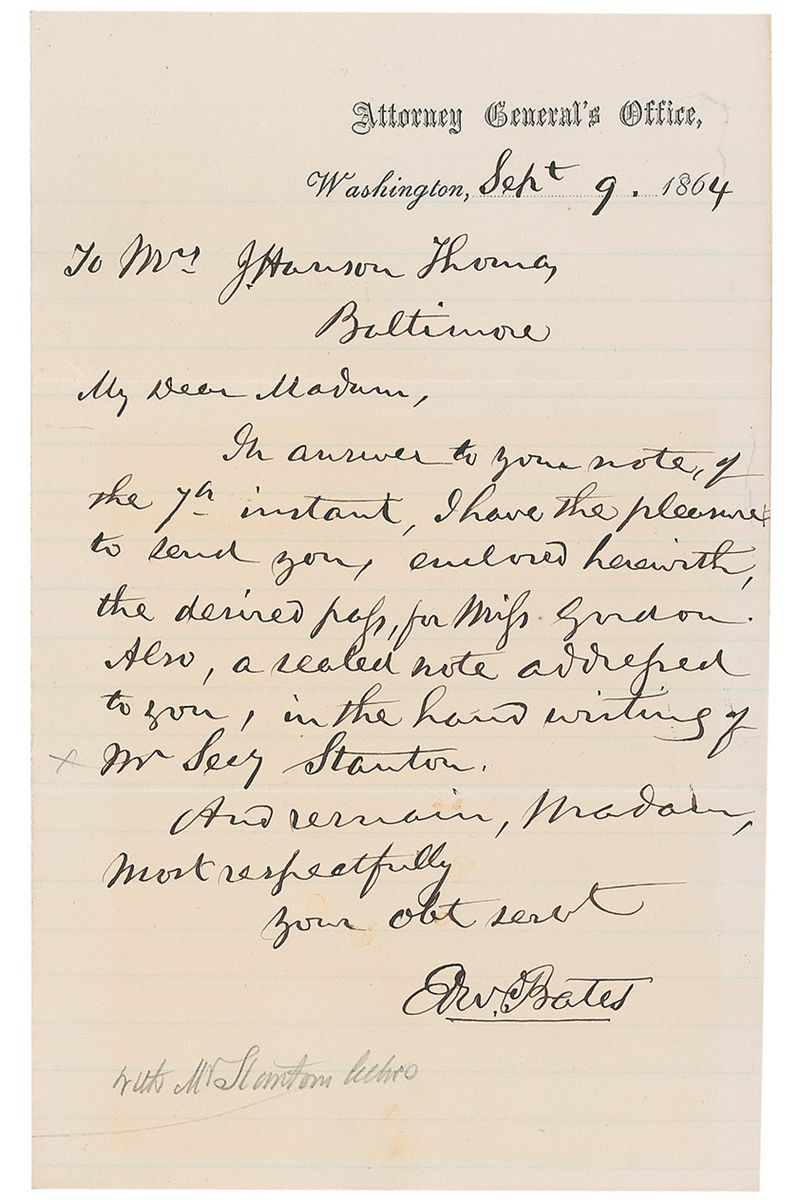 Attorney General's Office,
Washington, Sept 9. 1864
To Mrs J. Hanson Thomas
Baltimore
My Dear Madam,
In answer to your note, of
the 7th instant, I have the pleasure
to send you, enclosed herewith,
the desired pass, for Miss Gordon.
Also, a sealed note addressed
to you, in the hand writing of
x Mr Secy Stanton.
And remain, Madam,
Most respectfully
your obt servt
Edw. Bates
with Mr Stanton